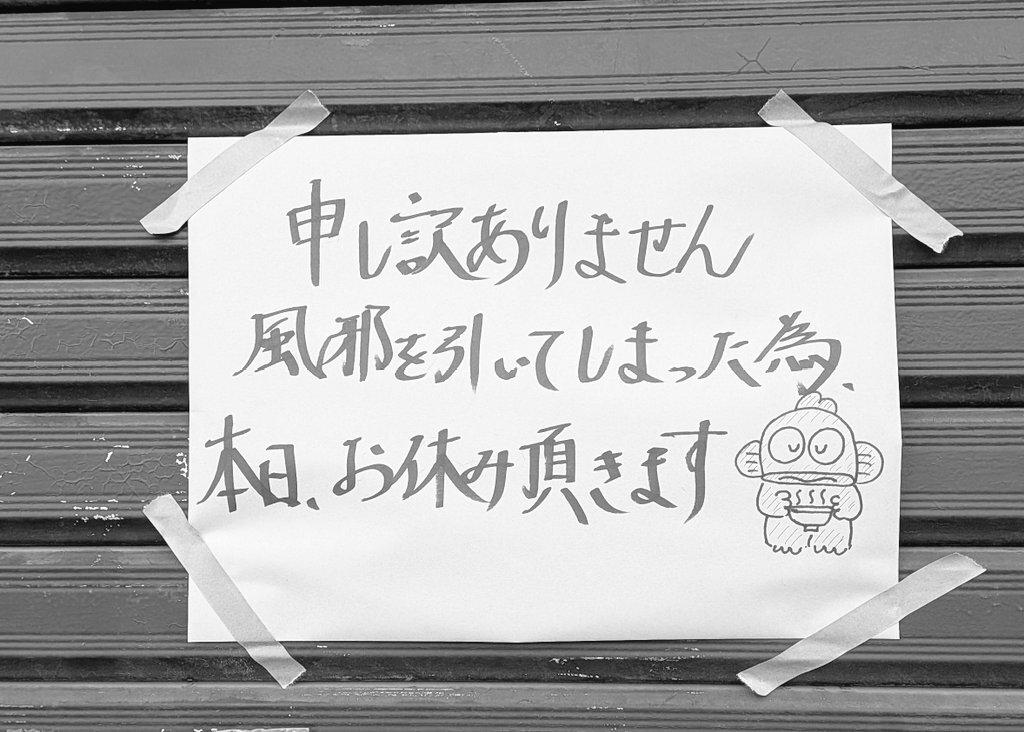 申し訳ありません
風邪を引いてしまった為、
本日、お休み頂きます